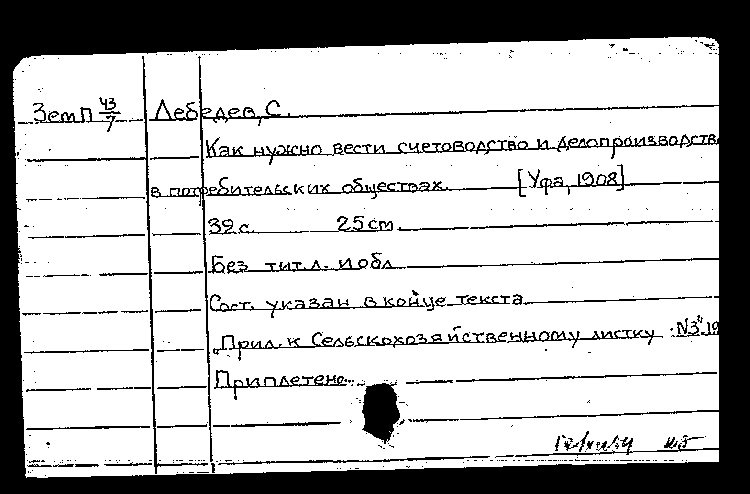 ЗемП 43/7 Лебедев, С.
Как нужно вести счетоводство и делопроизводств
в потребительских обществах. [Уфа, 1908]
39 с. 25 см.
Без тит. л. и обл.
Сост. указан в конце текста
"Прил. к Сельскохозяйственному листку №3" 19
Приплетено.